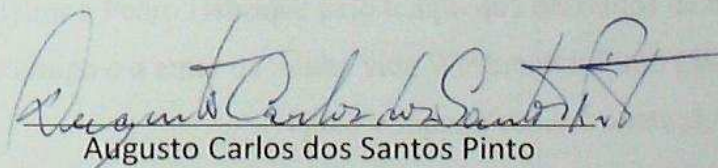 Augusto Carlos dos Santos Pinto
Augusto Carlos dos Santos Pinto